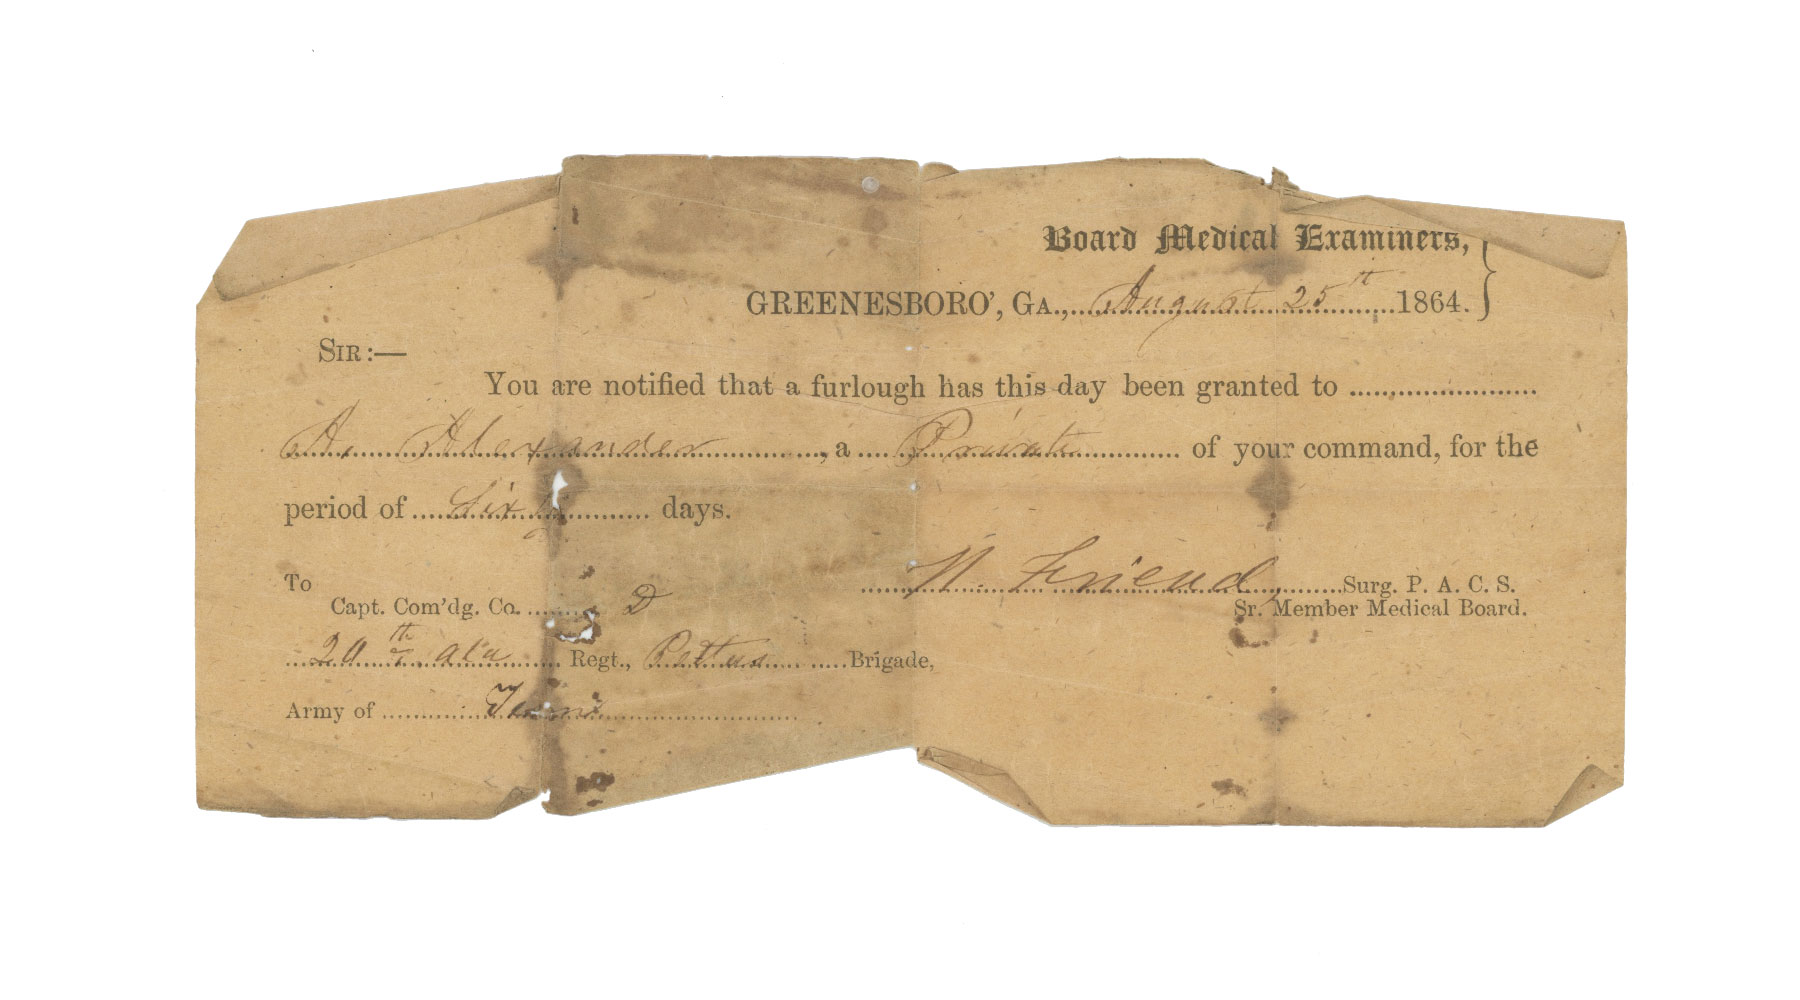 Board Medical Examiners,
GREENESBORO', GA., August 25th 1864.
SIR:—
You are notified that a furlough has this day been granted to
A. Alexander, a Private of your command, for the
period of Sixty days.
N. Friend Surg. P. A. C. S.
Sr. Member Medical Board.
To
Capt. Com'dg. Co. D
20th Ala Regt., Pettus Brigade,
Army of Tenn